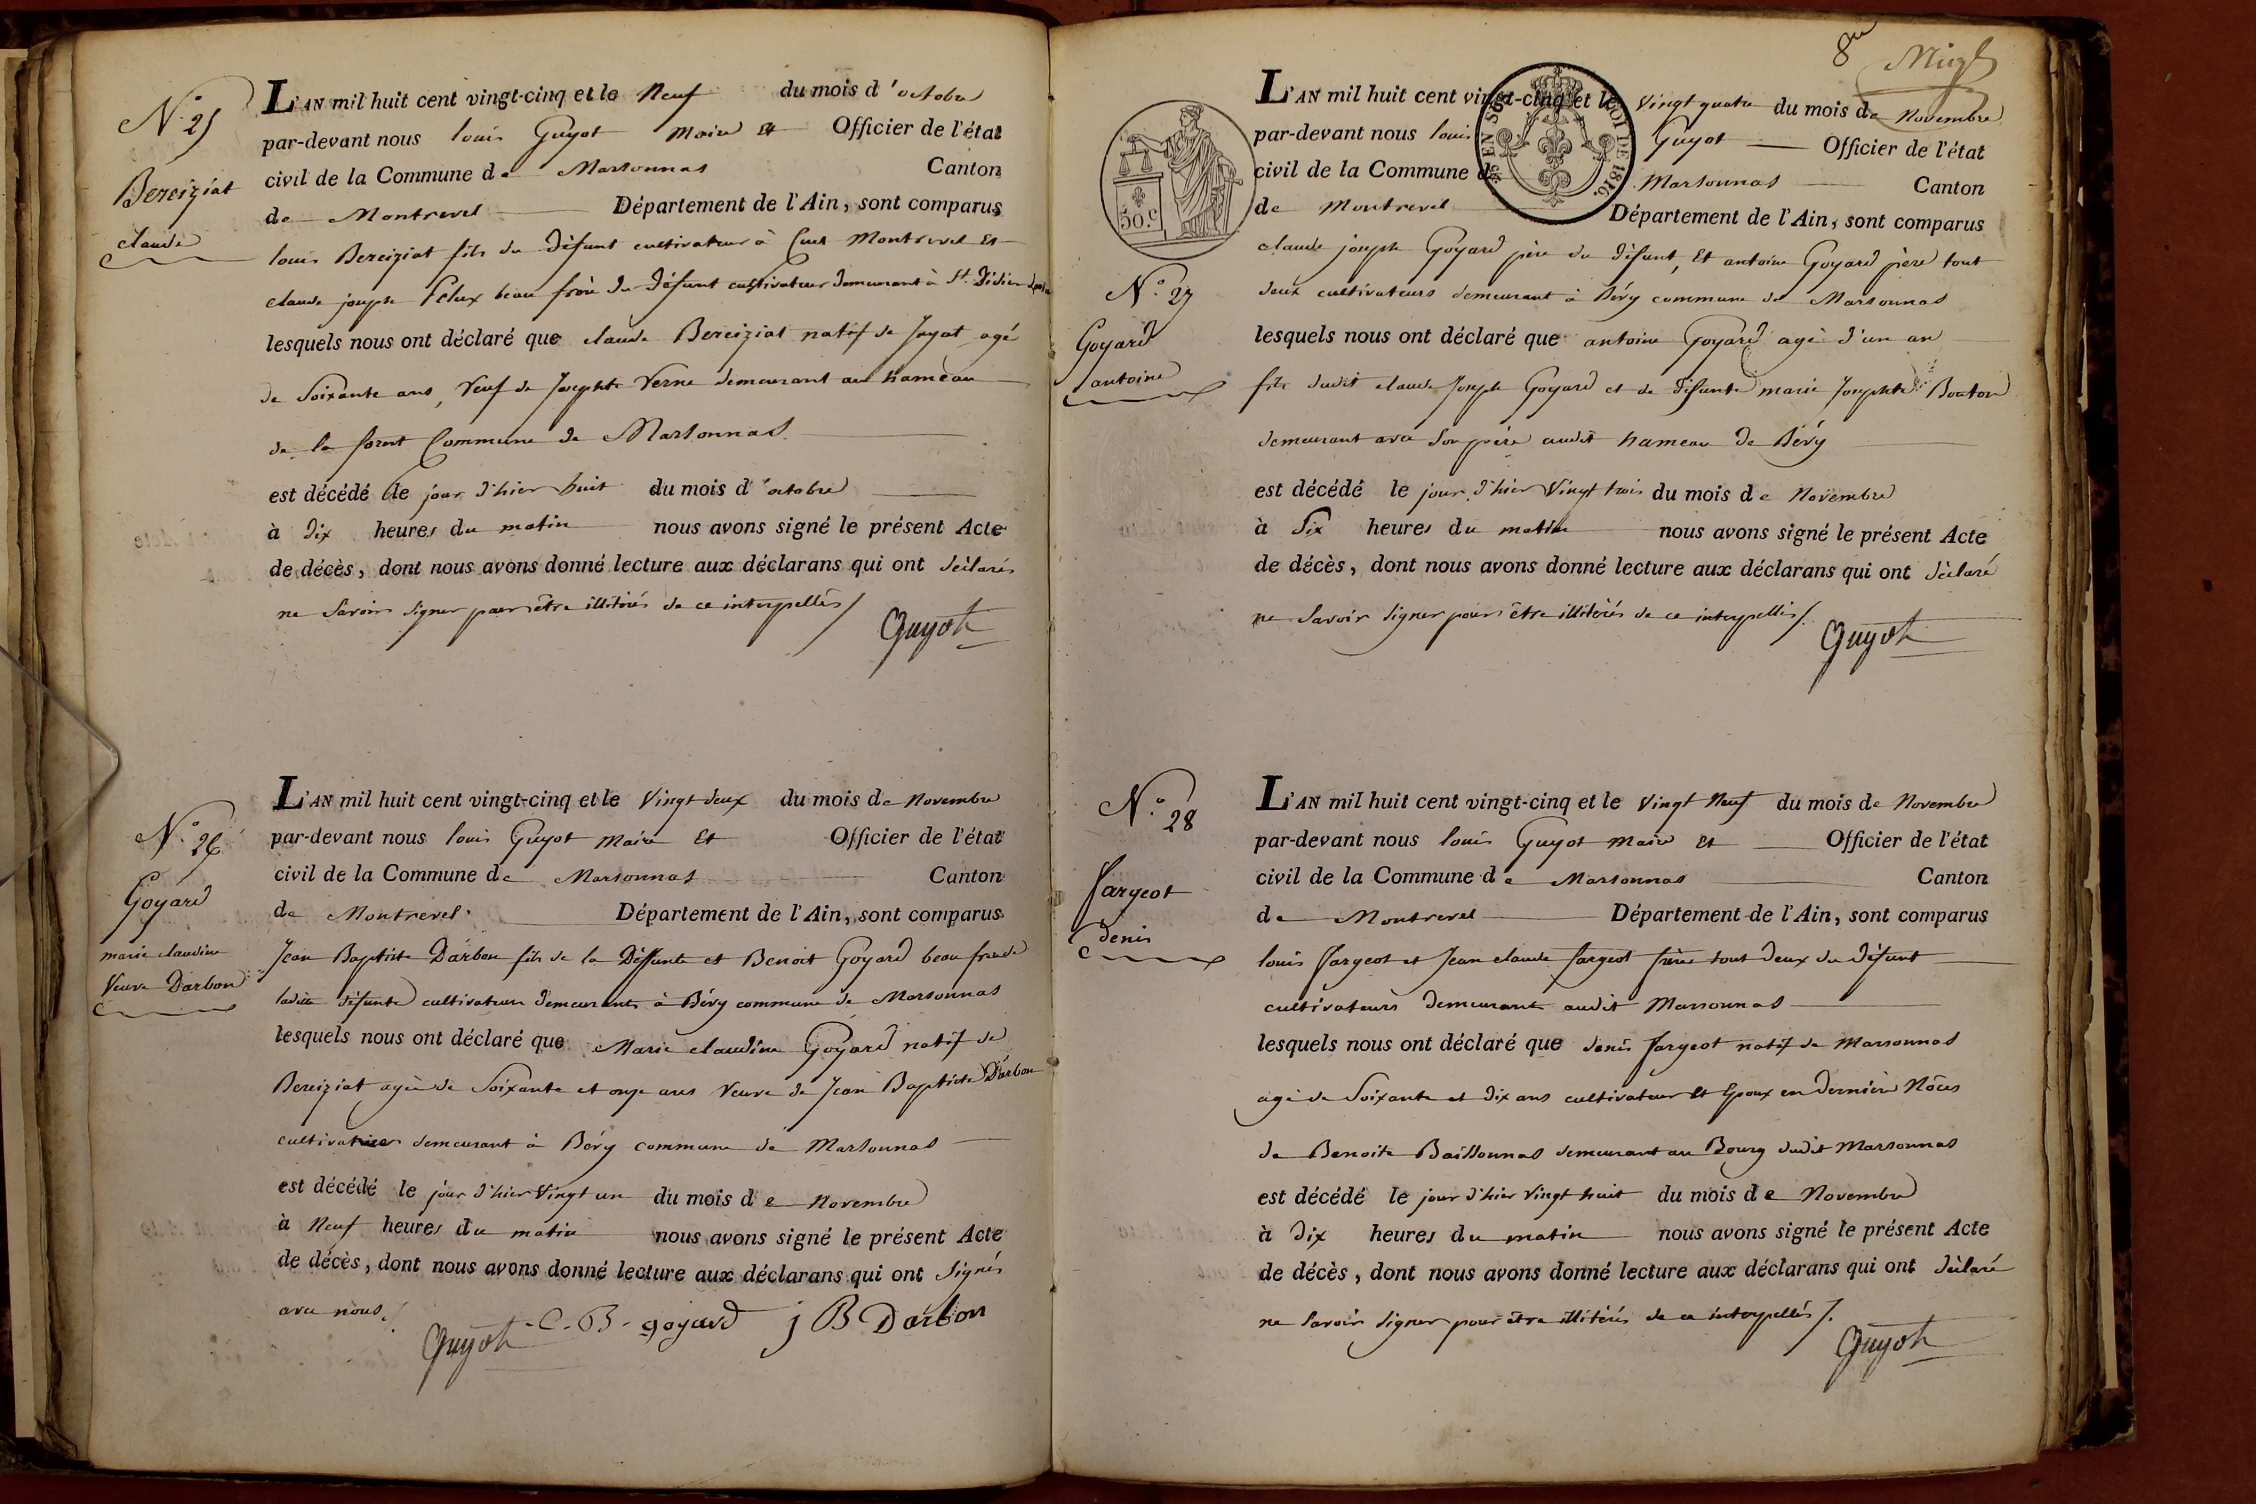 N.° 25
Bereiziat
claude
L'AN mil huit cent vingt-cinq et le Neuf du mois d'octobre
par-devant nous louis Guyot maire et Officier de l'état
civil de la Commune de Marsonnas Canton
de Montrevel Département de l'Ain, sont comparus
louis Bereiziat fils du défunt cultivateur à Cuet Montrevel et
claude joseph Pelux beau frère du défunt cultivateur demeurant à St. Didier
lesquels nous ont déclaré que claude Bereiziat natif de Jayat agé
de Soixante ans, Veuf de Josephte Verne demeurant au hameau
de la foret Commune de Marsonnas
est décédé le jour d'hier huit du mois d'octobre
à dix heures du matin nous avons signé le présent Acte
de décès, dont nous avons donné lecture aux déclarans qui ont déclarés
ne Savoir signer pour être illitérés de ce interpellés/
Guyot
N.° 26
Goyard
marie claudine
Veuve Darbon
L'AN mil huit cent vingt-cinq et le Vingt deux du mois de Novembre
par-devant nous louis Guyot Maire et Officier de l'état
civil de la Commune de Marsonnas Canton
de Montrevel Département de l'Ain, sont comparus
Jean Baptiste Darbon fils de la Deffunte et Benoit Goyard beau frere de
ladite défunte cultivateurs demeurants à Bévy commune de Marsonnas
lesquels nous ont déclaré que Marie claudine Goyard natif de
Bereiziat agée de Soixante et onze ans Veuve de Jean Baptiste Darbon
cultivatrice demeurant à Bévy commune de Marsonnas
est décédé le jour d'hier Vingt un du mois de Novembre
à Neuf heures du matin nous avons signé le présent Acte
de décès, dont nous avons donné lecture aux déclarans qui ont Signés
avec nous./
Guyot C. B. goyard j B Darbon
8me
L'AN mil huit cent vingt-cinq et le Vingt quatre du mois de Novembre
par-devant nous louis Guyot Officier de l'état
civil de la Commune de Marsonnas Canton
de Montrevel Département de l'Ain, sont comparus
50.c
EN SUS
LOI DE 1816.
N.° 27
Goyard
antoine
claude joseph Goyard père du défunt, Et antoine Goyard père tout
deux cultivateurs demeurant à Bévy commune de Marsonnas
lesquels nous ont déclaré que antoine Goyard agé d'un an
fils dudit claude Joseph Goyard et de défunte marie Josephte Bouton
demeurant avec Son père audit hameau de Bévy
est décédé le jour d'hier Vingt trois du mois de Novembre
à Six heures du matin nous avons signé le présent Acte
de décès, dont nous avons donné lecture aux déclarans qui ont déclaré
ne Savoir Signer pour être illitérés de ce interpellés/.
Guyot
N.° 28
fargeot
denis
L'AN mil huit cent vingt-cinq et le Vingt Neuf du mois de Novembre
par-devant nous louis Guyot maire et Officier de l'état
civil de la Commune de Marsonnas Canton
de Montrevel Département de l'Ain, sont comparus
louis fargeot et Jean claude fargeot frères tout deux du défunt
cultivateurs demeurant audit Marsonnas
lesquels nous ont déclaré que denis fargeot natif de Marsonnas
agé de Soixante et dix ans cultivateur Et Epoux en dernière Nôces
de Benoite Baissonnas demeurant au Bourg dudit Marsonnas
est décédé le jour d'hier Vingt huit du mois de Novembre
à dix heures du matin nous avons signé le présent Acte
de décès, dont nous avons donné lecture aux déclarans qui ont déclaré
ne Savoir Signer pour être illitérés de ce interpellés/.
Guyot